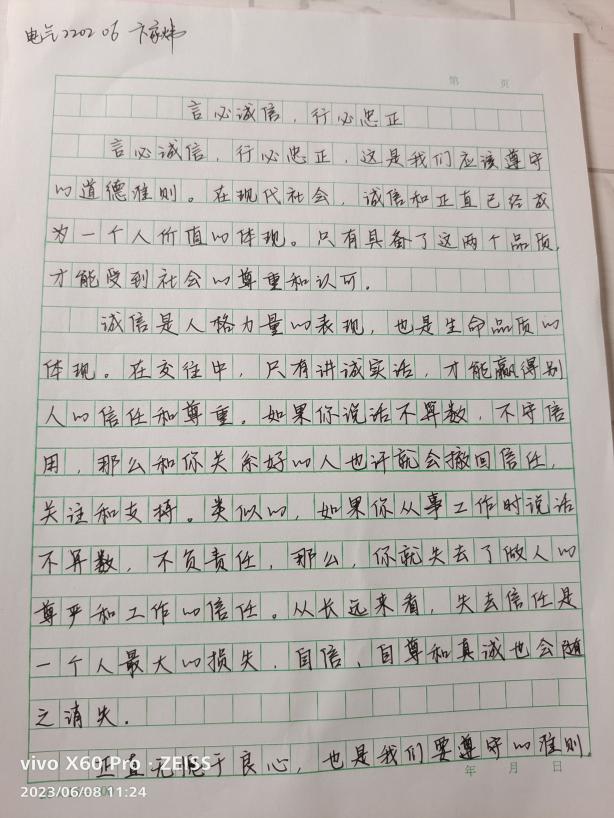 电气2202 06 卞家炜
第 页
言必诚信，行必忠正
言必诚信，行必忠正，这是我们应该遵守
的道德准则。在现代社会，诚信和正直已经成
为一个人价值的体现。只有具备了这两个品质，
才能受到社会的尊重和认可。
诚信是人格力量的表现，也是生命品质的
体现。在交往中，只有讲诚实话，才能赢得别
人的信任和尊重。如果你说话不算数，不守信
用，那么和你关系好的人也许就会撤回信任，
关注和支持。类似的，如果你从事工作时说话
不算数，不负责任，那么，你就失去了做人的
尊严和工作的信任。从长远来看，失去信任是
一个人最大的损失，自信，自尊和真诚也会随
之消失。
正直无愧于良心，也是我们要遵守的准则。
年 月 日
vivo X60 Pro · ZEISS
2023/06/08 11:24